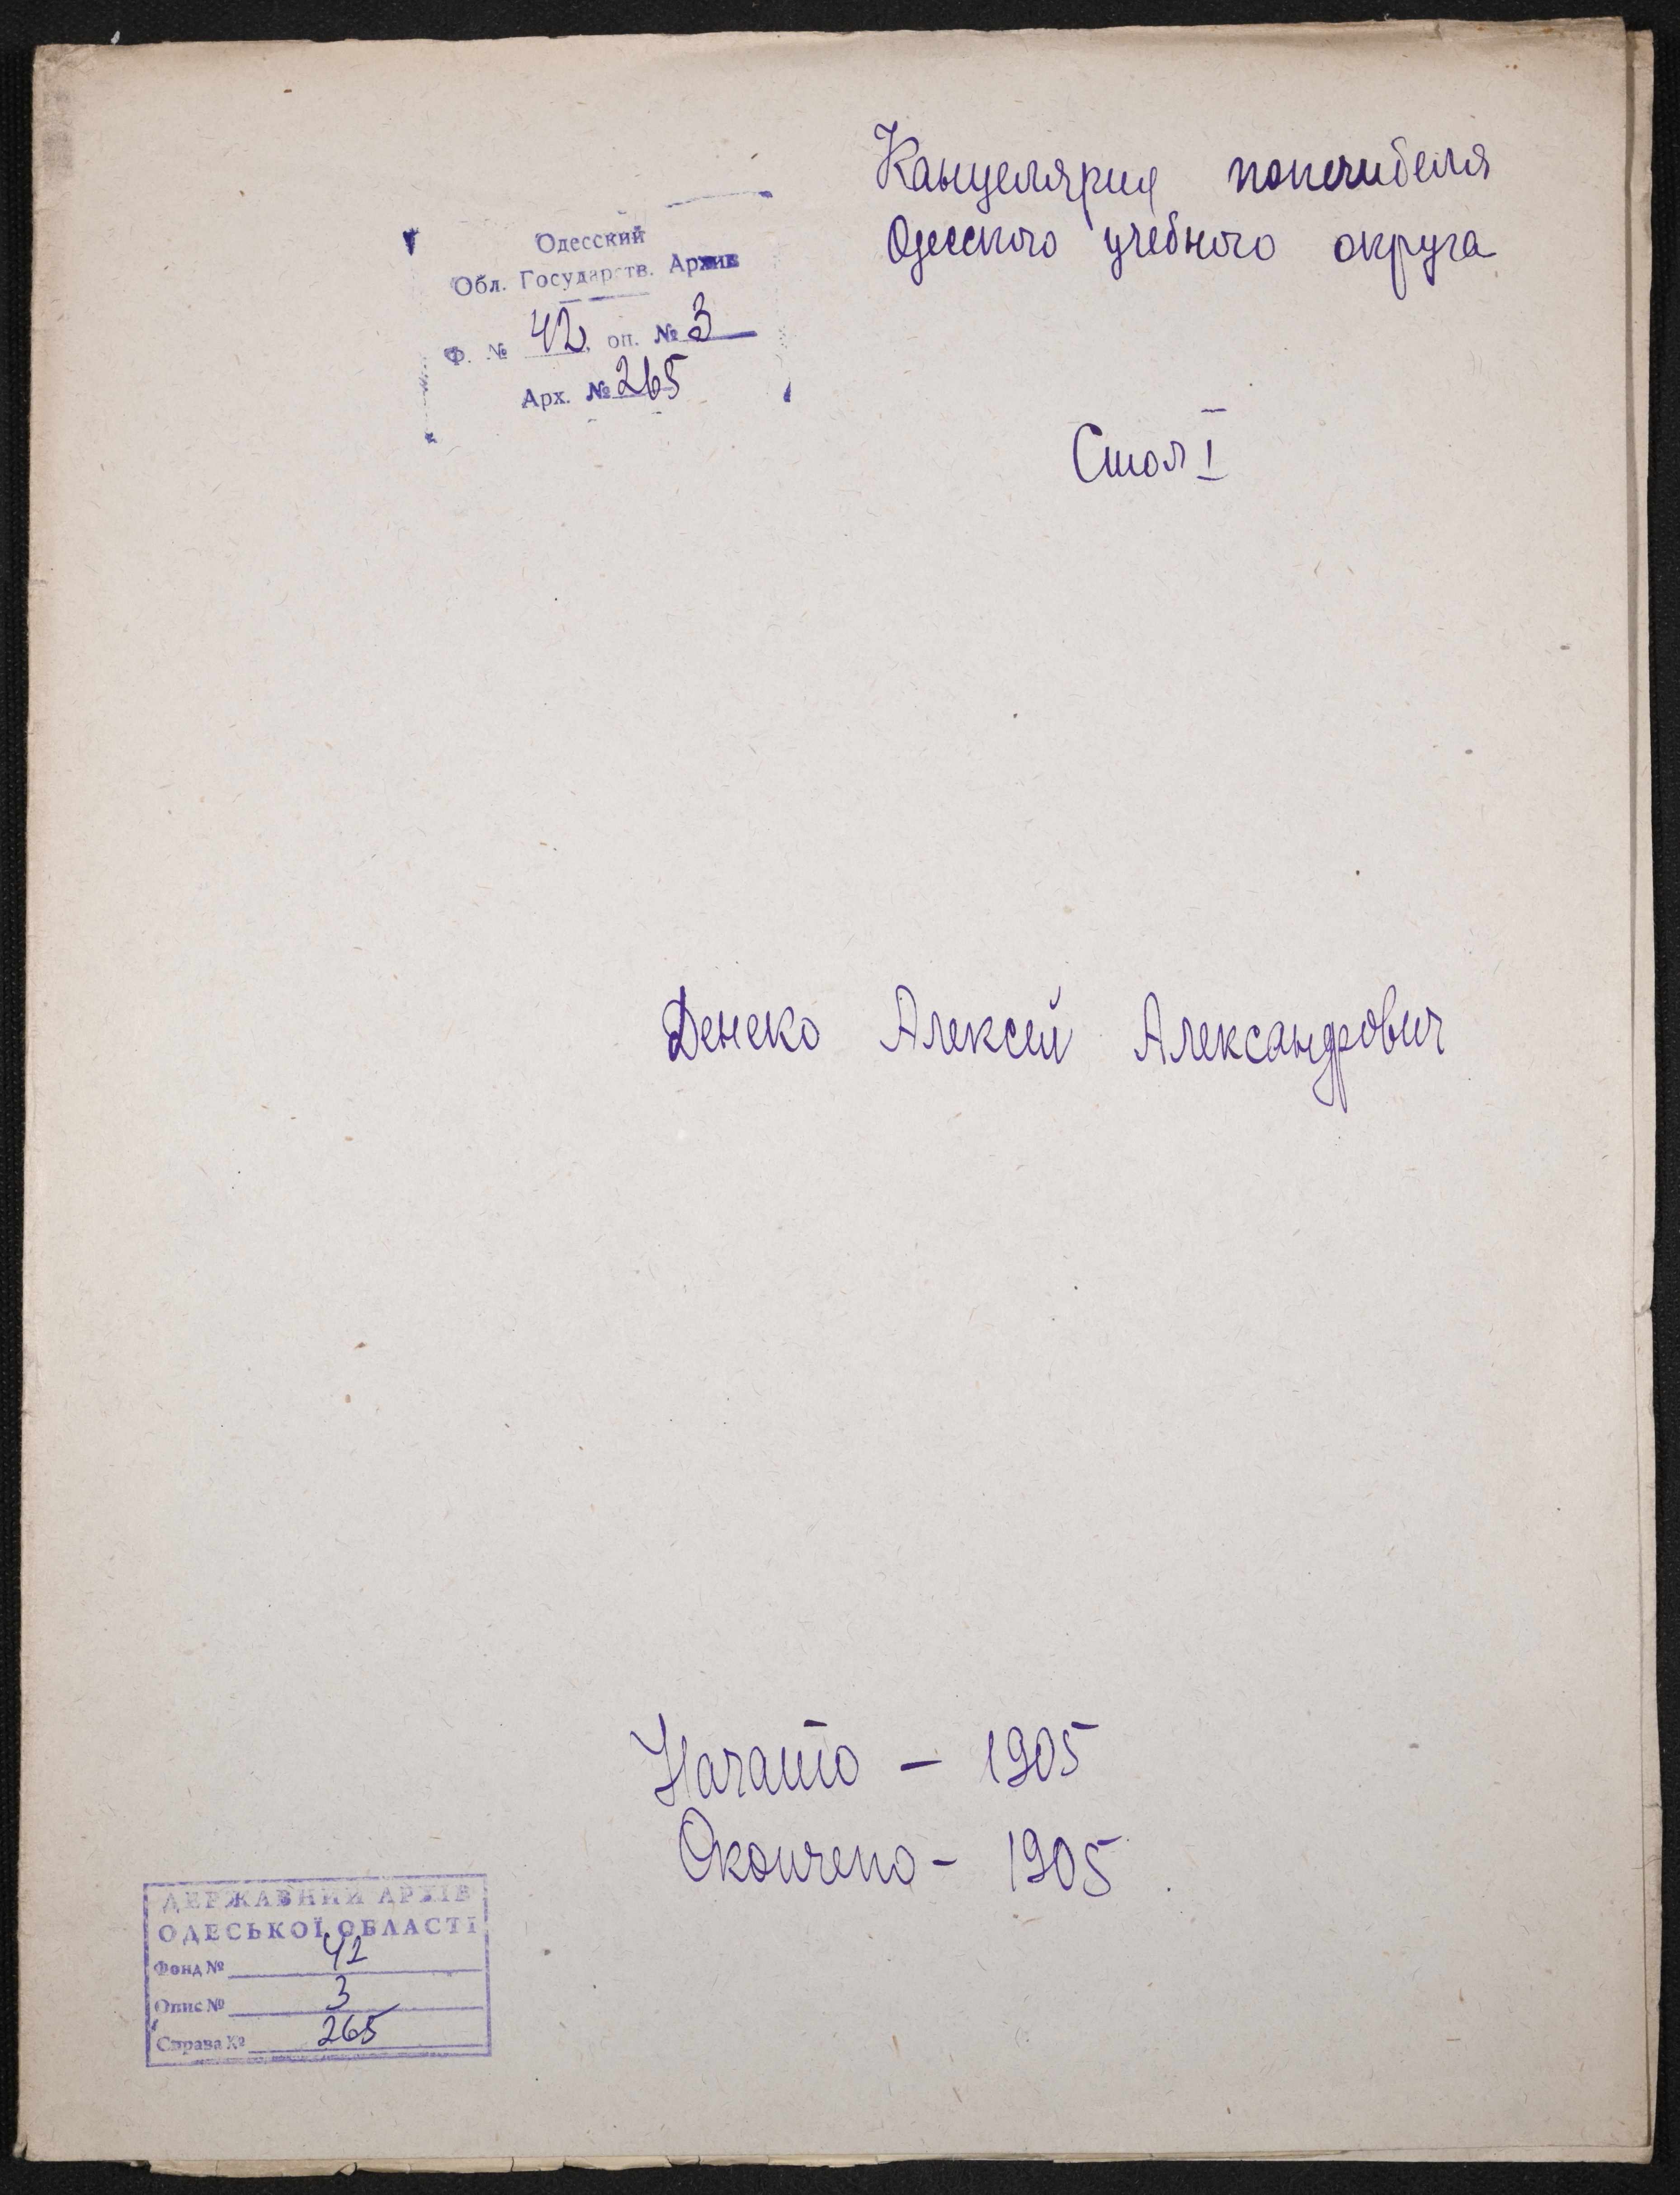 Канцелярия попечителя
Одесского учебного округа
Одесский
Обл. Государств. Архив
Ф. № 42, оп. № 3
Арх. № 265
Стол I
Денеко Алексей Александрович
Начато – 1905
Окончено – 1905
ДЕРЖАВНИЙ АРХІВ
ОДЕСЬКОЇ ОБЛАСТІ
Фонд № 42
Опис № 3
Справа № 265